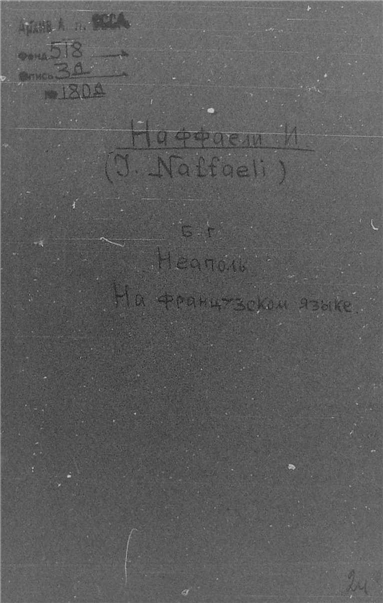 Архив А. Н. СССР
Фонд 518
Опись 3Д
№ 180Д
Наффаели И
(I. Naffaeli)
Б г.
Неаполь
На французском языке.
24